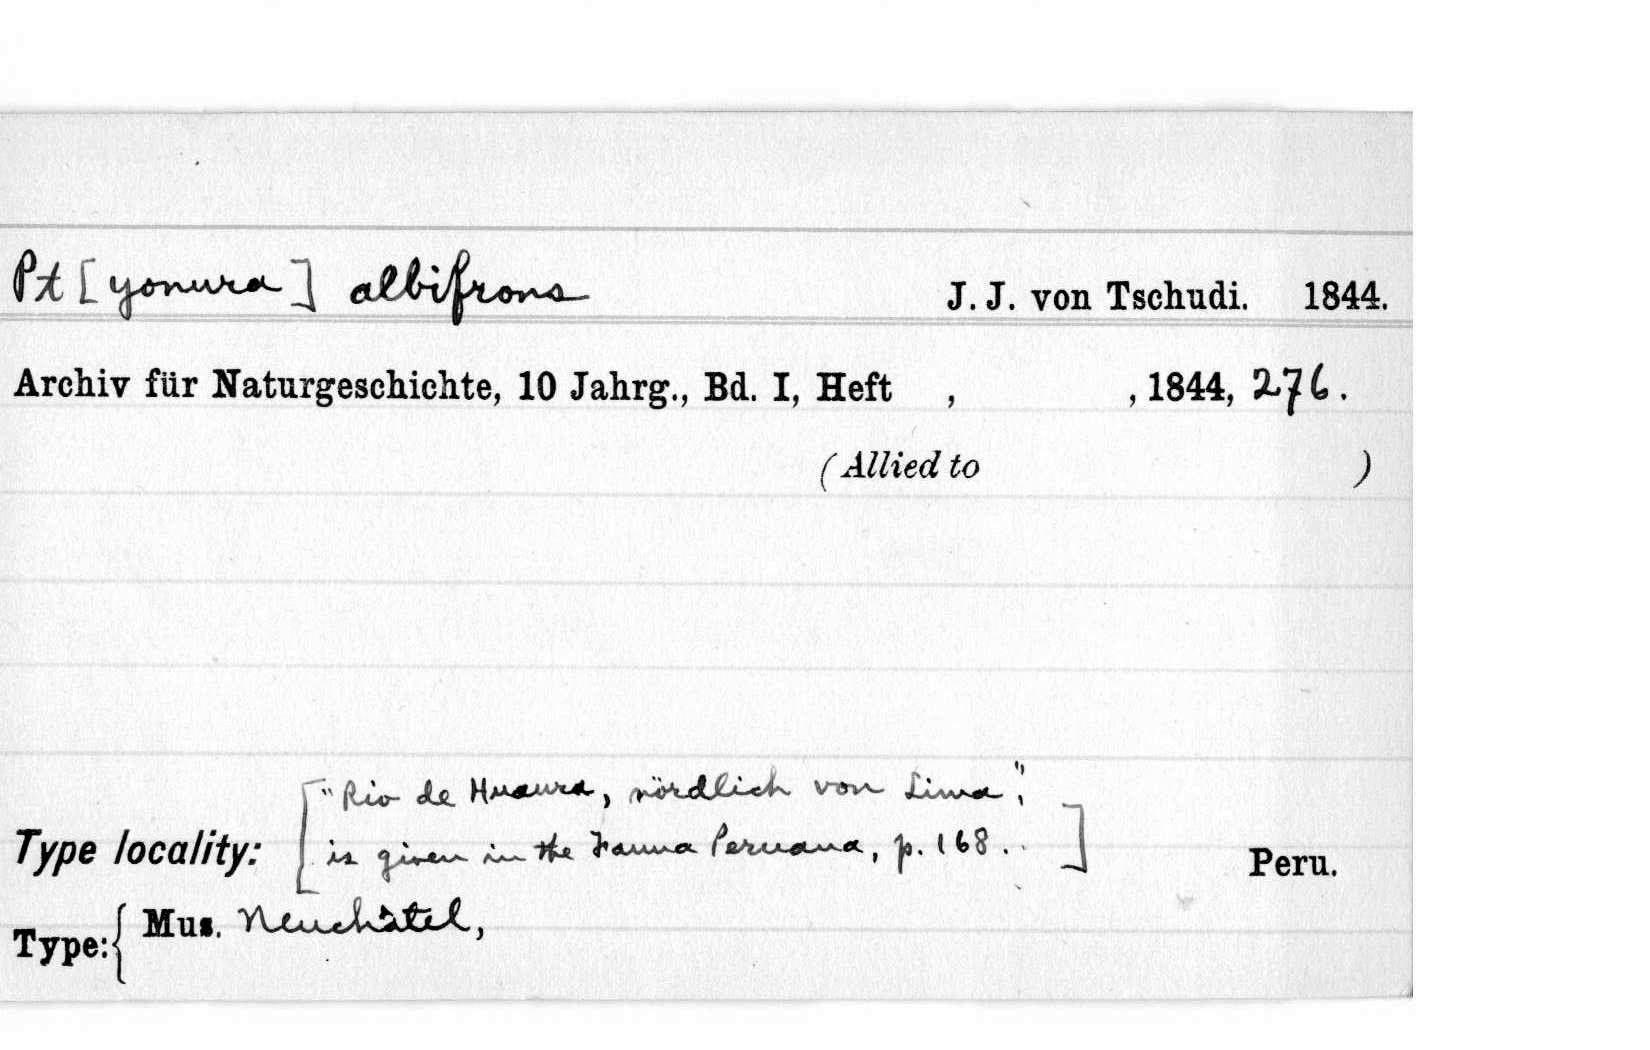 Pt [yonura] albifrons J. J. von Tschudi. 1844.
Archiv für Naturgeschichte, 10 Jahrg., Bd. I, Heft , , 1844, 276.
(Allied to )
["Rio de Huaura, nördlich von Lima",
Type locality: is given in the Fauna Peruana, p. 168. .] Peru.
Type: { Mus. Neuchâtel,